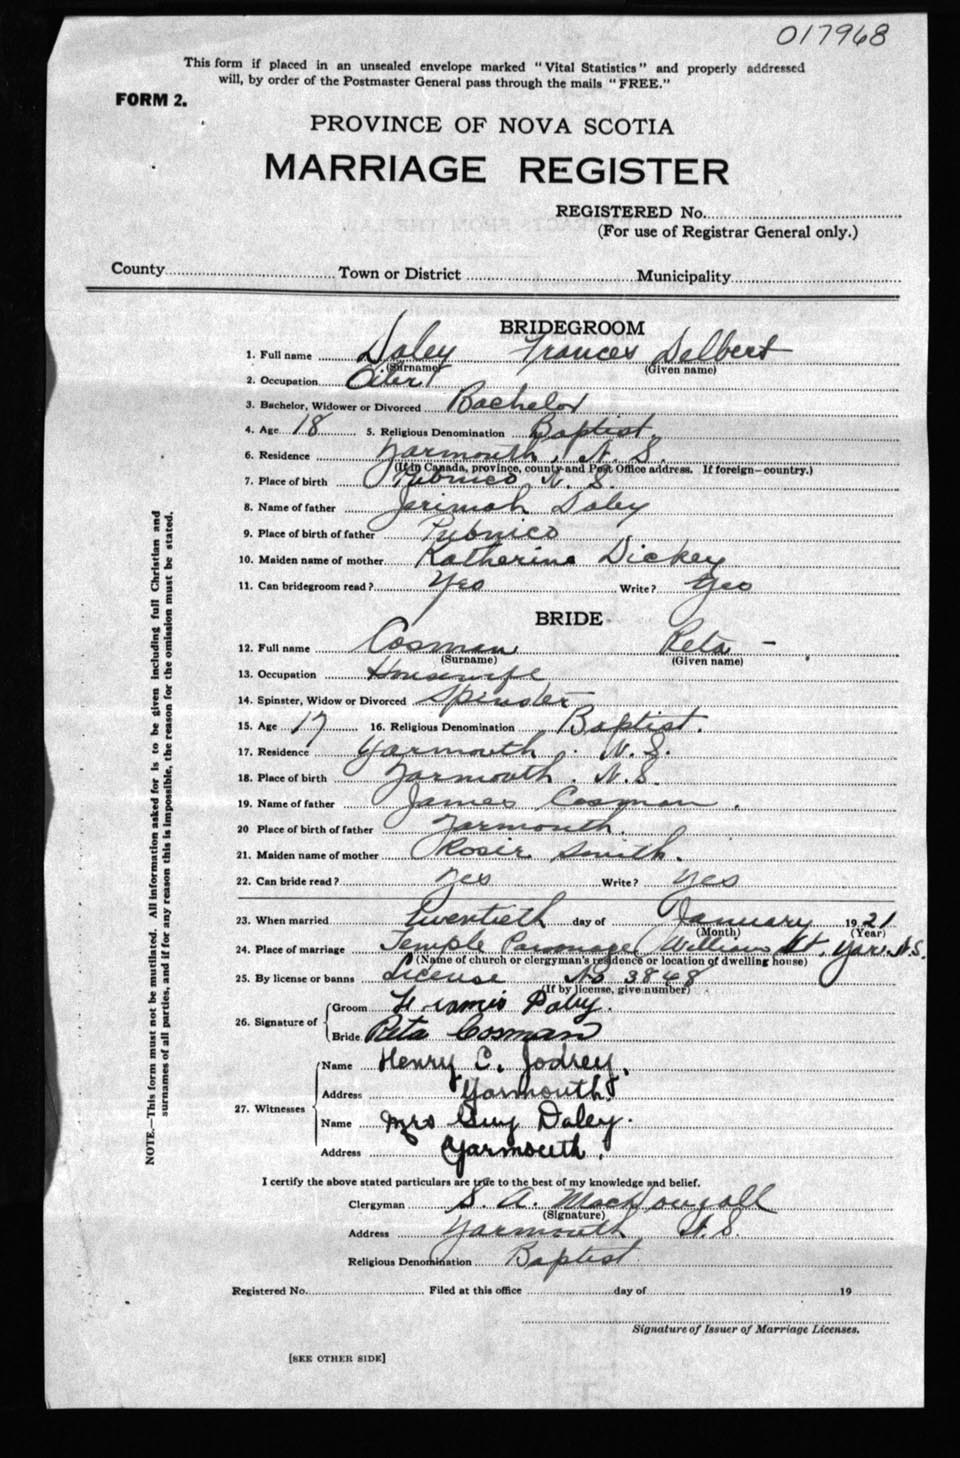 017968
This form if placed in an unsealed envelope marked "Vital Statistics" and properly addressed
will, by order of the Postmaster General pass through the mails "FREE."
FORM 2.
PROVINCE OF NOVA SCOTIA
MARRIAGE REGISTER
REGISTERED No.
(For use of Registrar General only.)
County Town or District Municipality
BRIDEGROOM
1. Full name Daley Frances Delbert
(Surname) (Given name)
2. Occupation
3. Bachelor, Widower or Divorced Bachelor
4. Age 18 5. Religious Denomination Baptist.
6. Residence Yarmouth, N. S.
(If in Canada, province, county and Post Office address. If foreign—country.)
7. Place of birth Pubnico N. S.
8. Name of father Jerimah Daley
9. Place of birth of father Pubnico
10. Maiden name of mother Katherine Dickey
11. Can bridegroom read? Yes Write? Yes
BRIDE
12. Full name Cosman Reta -
(Surname) (Given name)
13. Occupation Housewife
14. Spinster, Widow or Divorced Spinster
15. Age 17 16. Religious Denomination Baptist.
17. Residence Yarmouth. N. S.
18. Place of birth Yarmouth. N. S.
19. Name of father James Cosman.
20 Place of birth of father Yarmouth.
21. Maiden name of mother Smith.
22. Can bride read? Yes Write? Yes
23. When married Twentieth day of January 1921
(Month) (Year)
24. Place of marriage Temple Parsonage William St. Yar. N.S.
(Name of church or clergyman's residence or location of dwelling house)
25. By license or banns License No 3848
(If by license, give number)
26. Signature of Groom Francis Daley.
Bride Reta Cosman
27. Witnesses Name Henry C. Jodrey,
Address Yarmouth
Name Mrs Guy Daley.
Address Yarmouth.
I certify the above stated particulars are true to the best of my knowledge and belief.
Clergyman S. A. MacDougall
(Signature)
Address Yarmouth N. S.
Religious Denomination Baptist
Registered No. Filed at this office day of 19
Signature of Issuer of Marriage Licenses.
[SEE OTHER SIDE]
NOTE.—This form must not be mutilated. All information asked for is to be given including full Christian and
surnames of all parties, and if for any reason this is impossible, the reason for the omission must be stated.